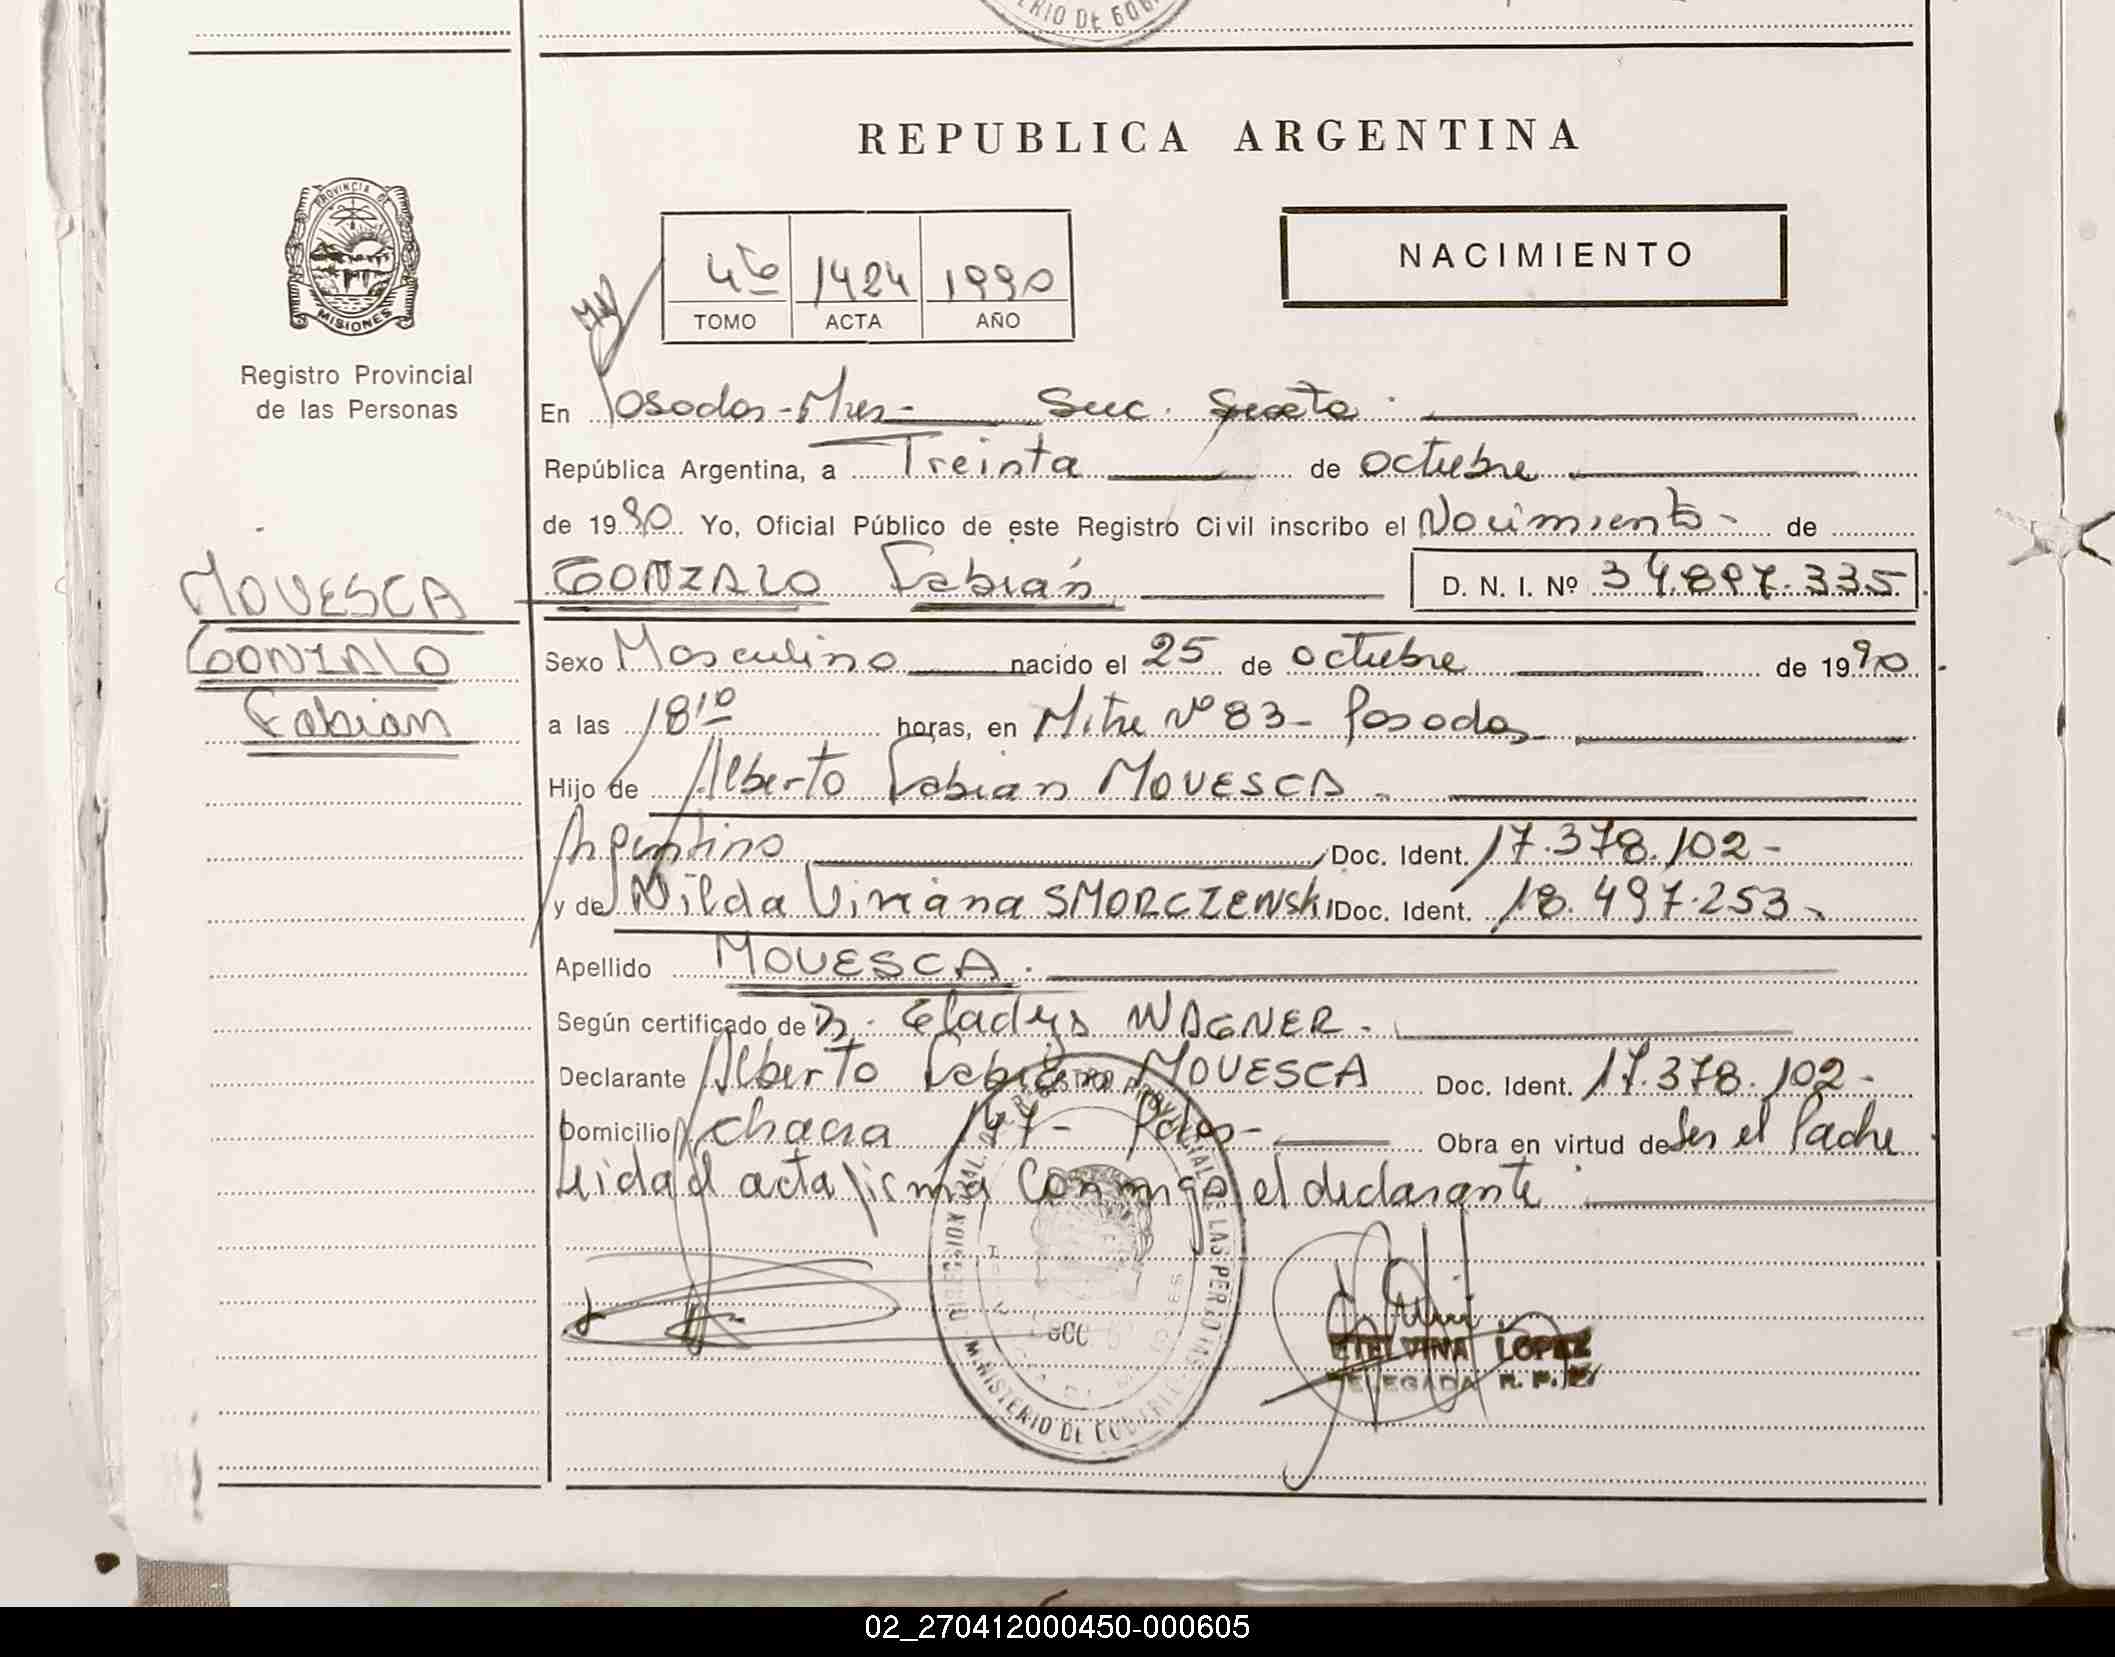 ERIO DE GOB
REPUBLICA ARGENTINA
PROVINCIA DE
MISIONES
Registro Provincial
de las Personas
4to 1424 1990
TOMO ACTA AÑO
NACIMIENTO
En Posadas-Mnes- Suc. Sexta.
República Argentina, a Treinta de octubre
de 1990 Yo, Oficial Público de este Registro Civil inscribo el Nacimiento- de
MOVESCA
GONZALO
Fabian
GONZALO Fabián D. N. I. Nº 34.897.335
Sexo Masculino nacido el 25 de octubre de 1990
a las 18,10 horas, en Mitre Nº 83- Posadas
Hijo de Alberto Fabian MOVESCA-
Argentino Doc. Ident. 17.378.102-
y de Nilda Viviana SMORCZEWSKI Doc. Ident. 18.497.253-
Apellido MOVESCA.
Según certificado de Dr. Gladys WAGNER.
Declarante Alberto Fabián MOVESCA Doc. Ident. 17.378.102-
Domicilio chacra 147- Pdas- Obra en virtud de Ser el Padre
Leida el acta firma conmigo el declarante
DIRECCION GRAL. DE REGISTRO PROVINCIAL DE LAS PERSONAS
MINISTERIO DE GOBIERNO
ETELVINA LOPEZ
DELEGADA R. P. P.
02_270412000450-000605